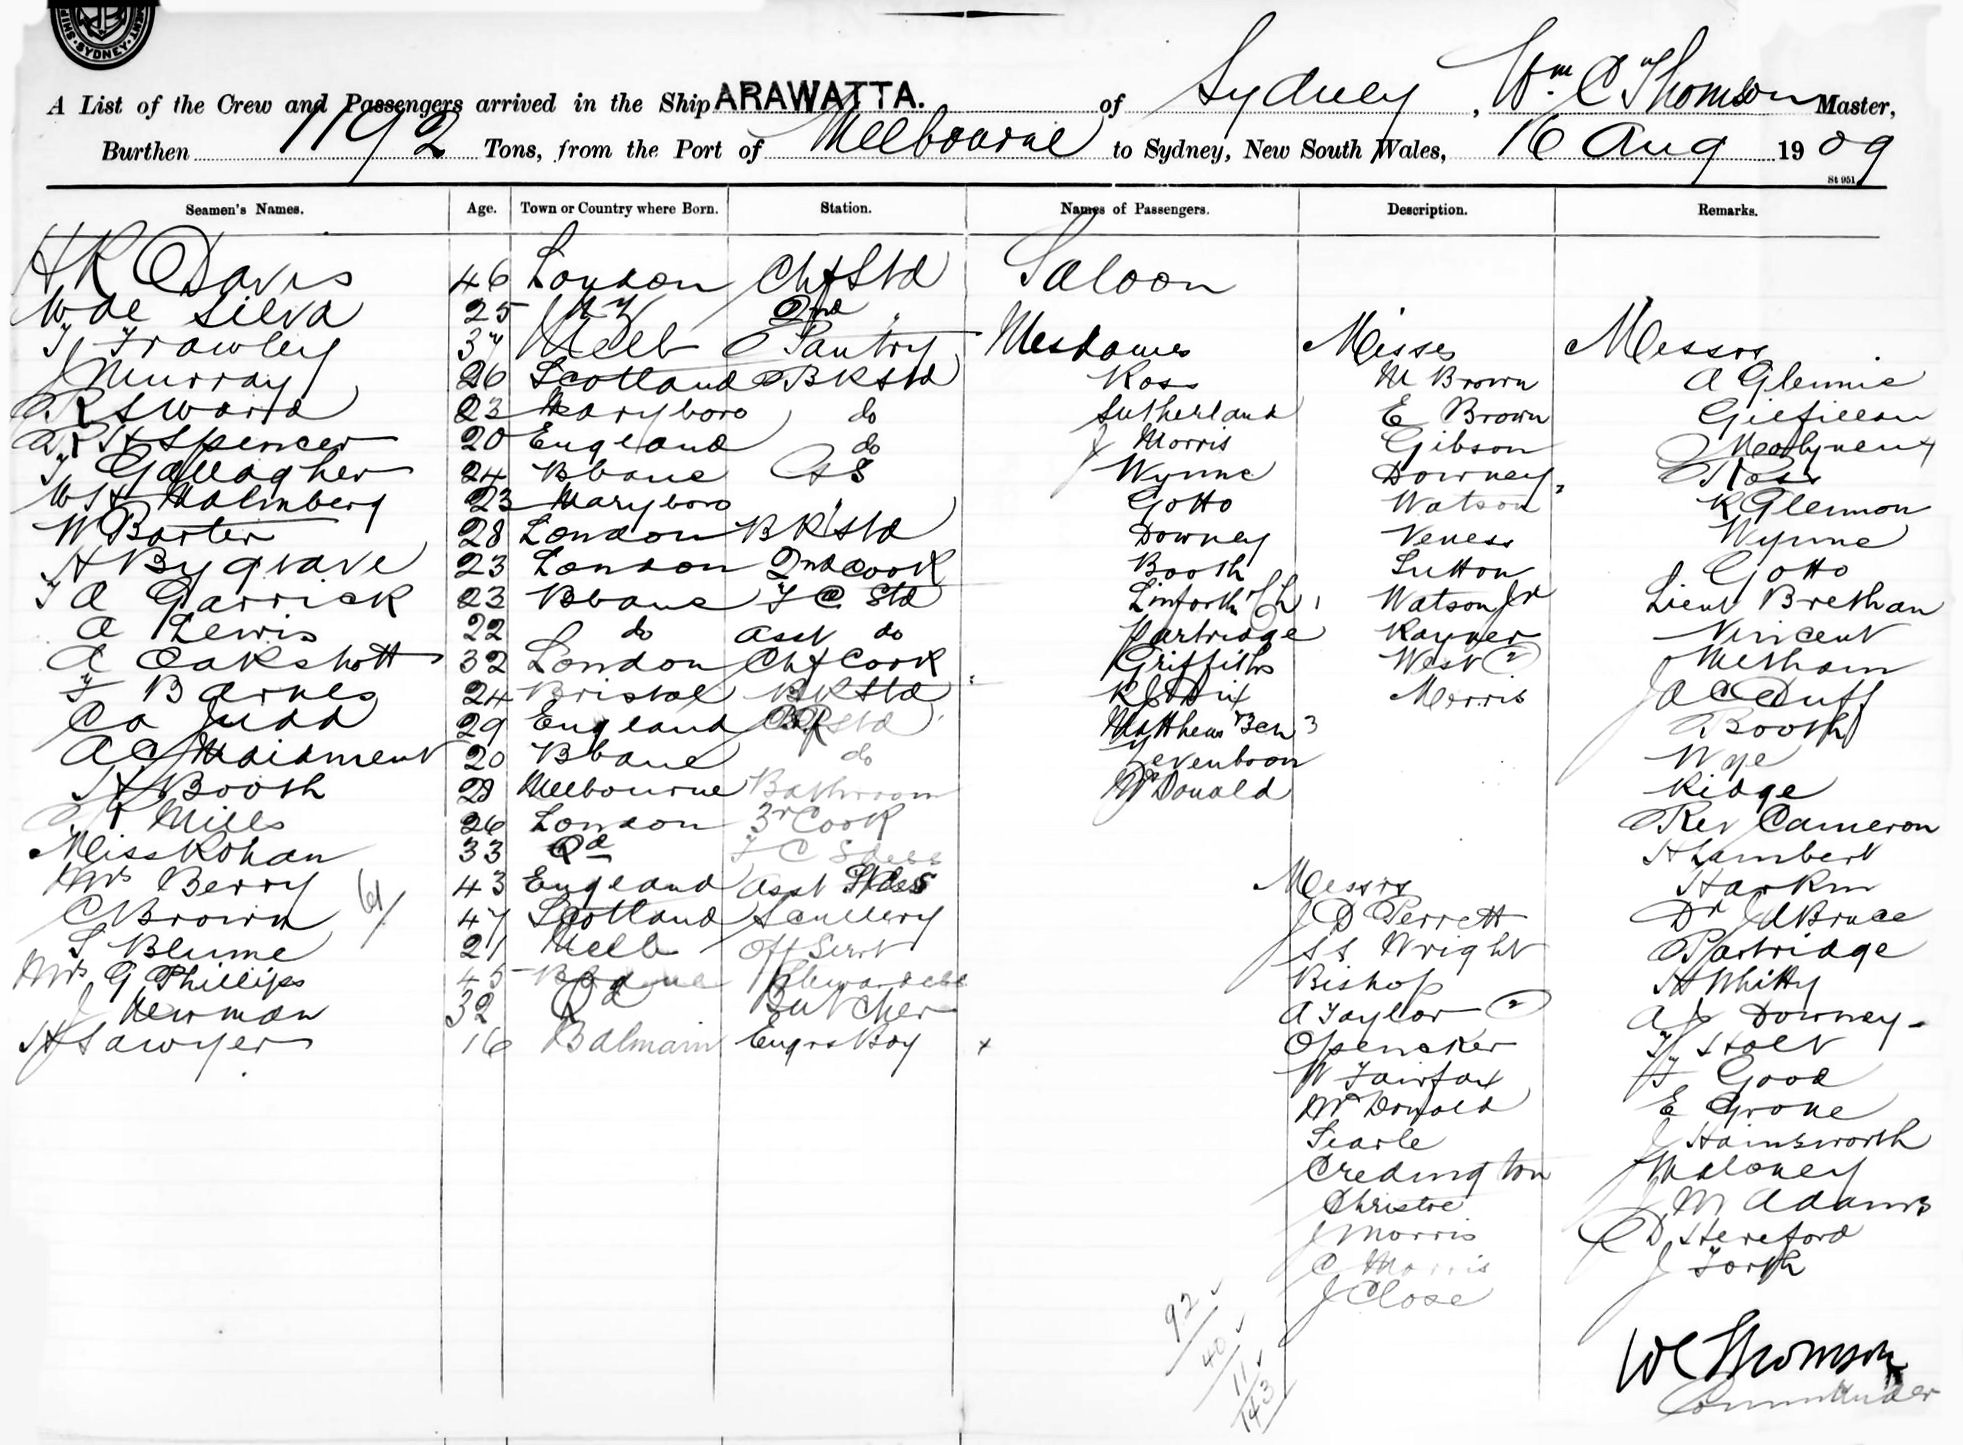 SYDNEY
A List of the Crew and Passengers arrived in the Ship ARAWATTA. of Sydney, Wm C Thomson Master,
Burthen 1192 Tons, from the Port of Melbourne to Sydney, New South Wales, 16 Aug 1909
St 951
Seamen's Names. Age. Town or Country where Born. Station. Names of Passengers. Description. Remarks.
H R Davis 46 London Chf Std Saloon
W de Silva 25 2nd "
T Frawley 37 Melb Pantry Mesdames Misses Messrs
J Murray 26 Scotland BKStd Ross M Brown A Glennie
R Sward 23 Maryboro do Sutherland E Brown Gilfillan
H Spencer 20 England do J Morris Gibson Molyneux
T Gallagher 24 Bbane Wynne Downey Ross
W H Malmberg 23 Maryboro Gotto Watson R Glennon
W Barter 28 London BKStd Downey Veness Wynne
H Bygrave 23 London 2nd Cook Booth Sutton Gotto
T A Garrick 23 Bbane F C Std Linforth Ch 1 Watson Jr Lieut Brethan
A Lewis 22 do asst do Partridge Rayner Vincent
A Oakshott 32 London Chf Cook Griffiths West 2 Metham
F Barnes 24 Bristol BKStd Morris J A C Duff
Co Judd 29 England Std Matthews 3 Booth
A C Maidment 20 Bbane do Levenboon Nye
H Booth 28 Melbourne Bathroom McDonald Ridge
Mills 26 London 3r Cook Rev Cameron
Miss Rohan 33 Qd F C Stdess H Lambert
Mrs Berry 43 England Asst Stdess Messrs Harkin
C Brown 47 Scotland Scullery J D Perrett Dr J A Bruce
S Blume 21 Melb Off Servt S S Wright Partridge
Mrs G Phillips 45 Bbane Stewardess Bishop H Whitty
J Newman 32 Qd Butcher A Taylor 2 A J Downey
H Sawyer 16 Balmain Engrs Boy x Spencker Ty Holt
W Fairfax F Good
McDonald E Grove
Searle J Hainsworth
Credington Maloney
Christie J M Adams
J Morris C D Hereford
C Morris J Forth
J Close
92
40
11
143
W C Thomson
Commander